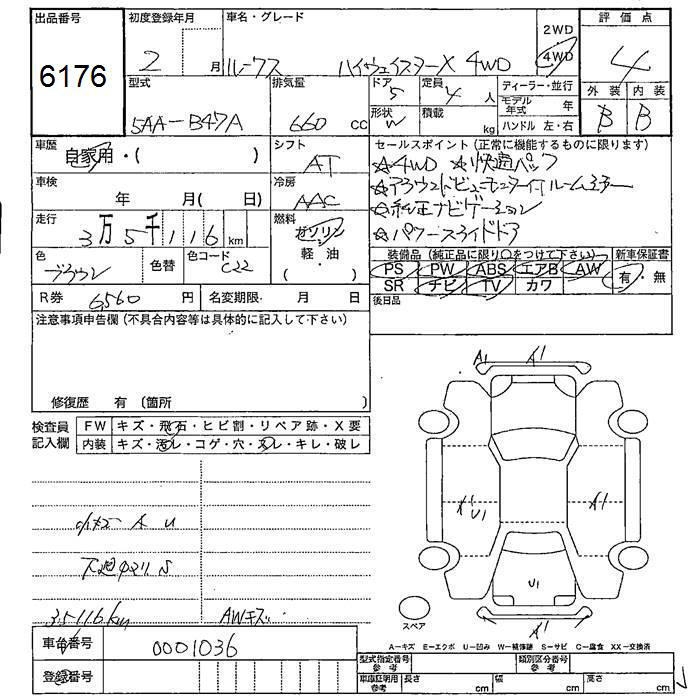 出品番号 初度登録年月 車名・グレード 評価点
6176 2 月 ルークス ハイウェイスターX 4WD 2WD 4WD 4
型式 排気量 ドア 5 定員 4 人 ディーラー・並行 外装 内装
5AA-B47A 660 cc 形状 W 積載 kg モデル年式 年 B B
ハンドル 左・右
車歴 自家用・( ) シフト AT セールスポイント(正常に機能するものに限ります)
☆4WD ☆快適パック
車検 年 月( 日) 冷房 AAC ☆アラウンドビューモニター付ルームミラー
☆純正ナビゲーション
走行 3万5千116 km 燃料 ガソリン 軽・油 ( ) ☆パワースライドドア
色 ブラウン 色替 色コード C22 装備品(純正品に限り○をつけて下さい) 新車保証書
PS PW ABS エアB AW 有・無
SR ナビ TV カワ
R券 6560 円 名変期限 月 日 後日品
注意事項申告欄(不具合内容等は具体的に記入して下さい)
修復歴 有 (箇所 )
検査員記入欄 FW キズ・飛石・ヒビ割・リペア跡・X要
内装 キズ・汚レ・コゲ・穴・スレ・キレ・破レ
A1 A1
A U
U1 A1
S
U1
35116km AWキズ
A1
スペア
A-キズ E-エクボ U-凹み W-補修跡 S-サビ C-腐食 XX-交換済
車台番号 0001036
型式指定番号 参考 類別区分番号 参考
登録番号 車庫証明用 参考 長さ cm 幅 cm 高さ cm